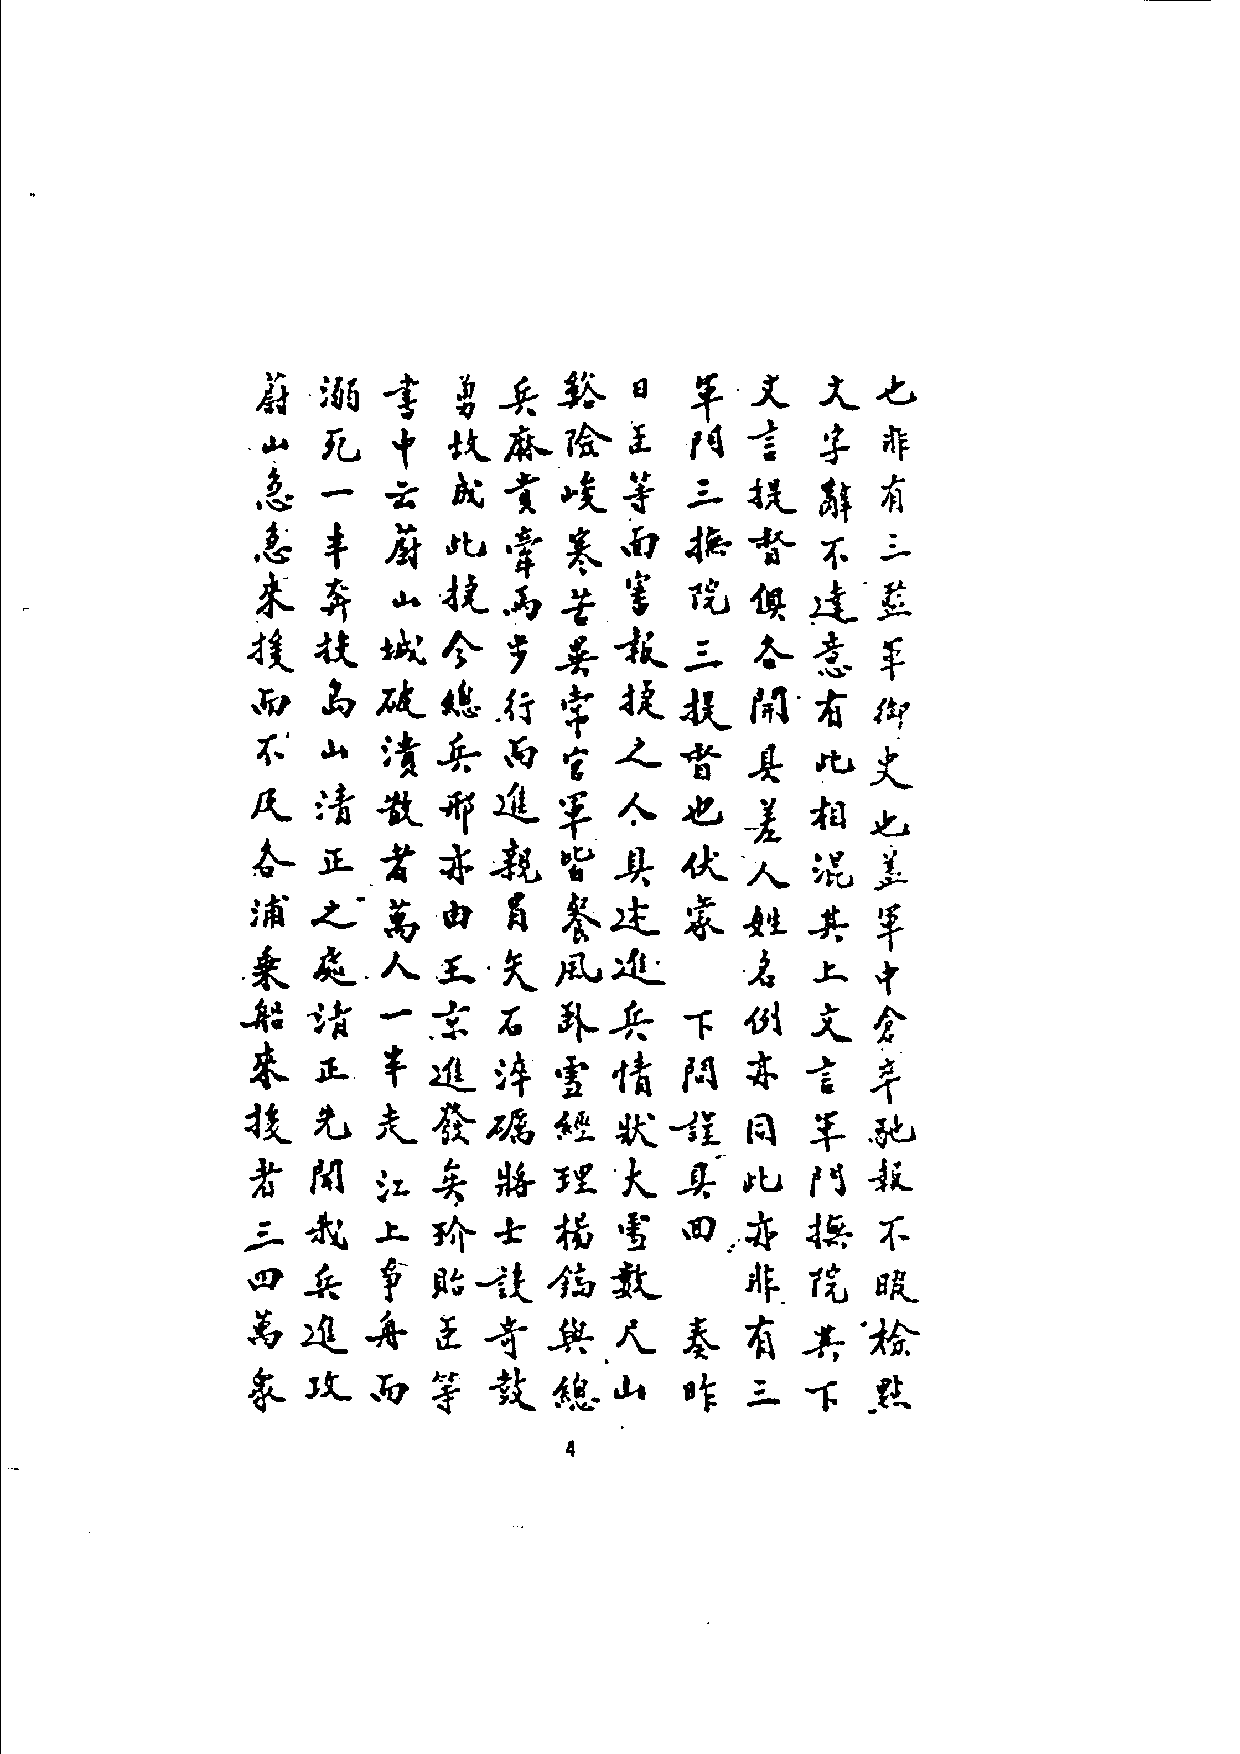 也非有三監軍御史也盖軍中倉卒馳報不暇検點
文字辭不達意有此相混其上文言軍門撫院其下
文言提督俱各開具差人姓名例亦同此亦非有三
軍門三撫院三提督也伏蒙 下問謹具回 奏昨
日臣等面審報捷之人具述進兵情狀大雪數尺山
谿險峻寒苦異常官軍皆餐風卧雪經理楊鎬與總
兵麻貴牽馬步行而進親冒矢石淬礪將士設奇鼓
勇故成此捷今總兵邢亦由王京進發矣玠貽臣等
書中云蔚山城破潰散者萬人一半走江上爭舟而
溺死一半奔扶島山清正之處清正先聞我兵進攻
蔚山急急來援而不及各浦乗船來援者三四萬衆
4